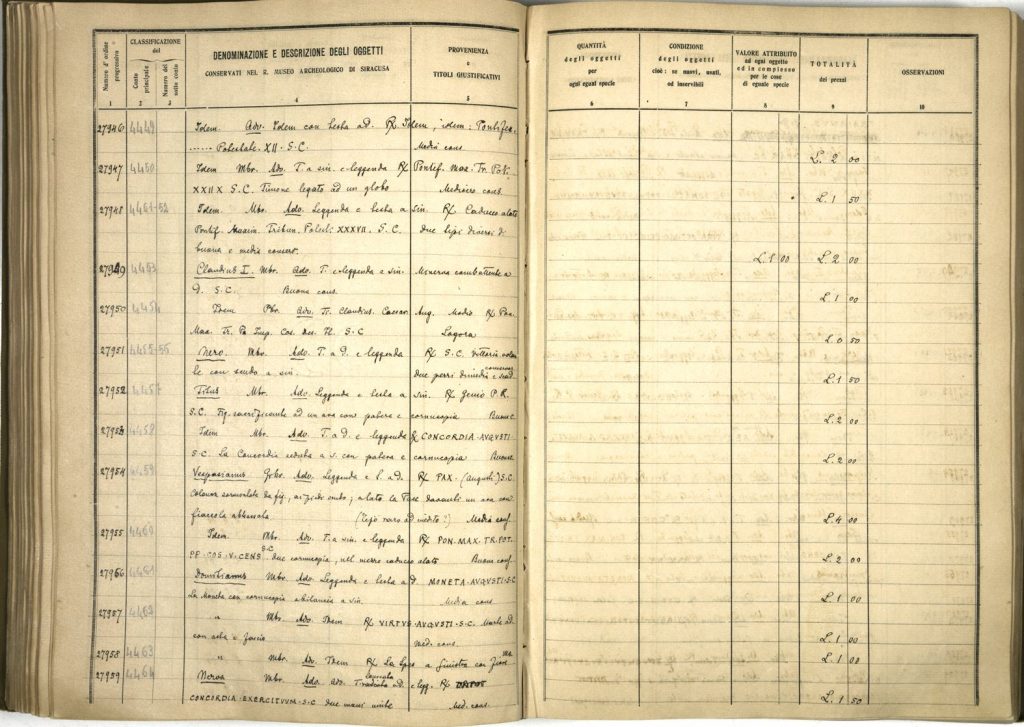 Numero d'ordine progressivo
CLASSIFICAZIONE del
Conto principale
Numero del sotto conto
DENOMINAZIONE E DESCRIZIONE DEGLI OGGETTI
CONSERVATI NEL R. MUSEO ARCHEOLOGICO DI SIRACUSA
PROVENIENZA
e
TITOLI GIUSTIFICATIVI
1 2 3 4 5
27946 4449 Idem. Adv. Idem con testa ad. R/ Idem, idem: Pontifex
...... Potestate. XII. S. C. Media cons.
27947 4450 Idem Mbr. Adv. T. a sin. e leggenda R/ Pontif. Max. Tr. Pot.
XXIIX S. C. Timone legato ad un globo Mediocre cons.
27948 4451-52 Idem. Mbr. Adv. Leggenda e testa a sin. R/ Caduceo alato
Pontif. Maxim. Tribun. Potest. XXXVII. S. C. due tipi diversi di
buona e media conserv.
27949 4453 Claudius I. Mbr. Adv. T. e leggenda a sin. Minerva combattente a
d. S. C. Buona cons.
27950 4454 Idem Pbr. Adv. Ti. Claudius. Caesar Aug. Modio R/ Pon.
Max. Tr. Po Imp. Cos. Des. S. C Logora
27951 4455-56 Nero. Mbr. Adv. T. a d. e leggenda R/ S. C. Vittoria volan
te con scudo a sin. due pezzi di media conservaz.
27952 4457 Titus Mbr. Adv. Leggenda e testa a sin. R/ Genio P. R.
S. C. Fig. sacrificante ad un ara con patera e cornucopia Buona c.
27953 4458 Idem Mbr. Adv. T. a d. e leggenda R/ CONCORDIA·AVGVSTI·
S·C. La Concordia seduta a s. con patera e cornucopia Buona
27954 4459 Vespasianus Gbr. Adv. Leggenda e t. a d. R/ PAX. (Augusti) S. C.
Colonna sormontata da fig., ai piedi scudo; a lato la Pace davanti un ara con
fiaccola abbassata (Tipo raro ad inedito?) Media conf.
27955 4460 Idem. Mbr. Adv. T. a sin. e leggenda R/ PON·MAX·TR·POT·
PP·COS·V·CENS S·C due cornucopia, nel mezzo caduceo alato Buona conf.
27956 4461 Domitianus Mbr. Adv. Leggenda e testa a d. MONETA·AVGVSTI·S·C
La Moneta con cornucopia e bilancia a sin. Media cons
27957 4462 " Mbr. Adv. Idem R/ VIRTVS·AVGVSTI·S·C. Marte ad.
con asta e Med. cons.
27958 4463 " Mbr. Adv. Idem R/ La Spes a sinistra con fiore
27959 4464 Nerva Mbr. Adv. T. laureata ad. e legg. R/
CONCORDIA·EXERCITVVM·S·C due mani unite Med. cons.
QUANTITÀ
degli oggetti
per
ogni egual specie
CONDIZIONE
degli oggetti
cioè: se nuovi, usati,
od inservibili
VALORE ATTRIBUITO
ad ogni oggetto
ed in complesso
per le cose
di eguale specie
TOTALITÀ
dei prezzi
OSSERVAZIONI
6 7 8 9 10
L. 2 00
L. 1 50
L. 1 00 L. 2 00
L. 1 00
L. 0 50
L. 1 50
L. 2 00
L. 2 00
L. 4 00
L. 2 00
L. 1 00
L. 1 00
L. 1 00
L. 1 50